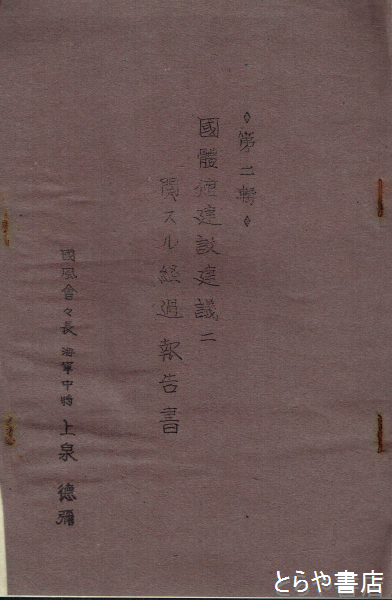 ◇第二輯◇
國體建設建議ニ
関スル経過報告書
國風會々長 海軍中將 上泉 德彌
とらや書店